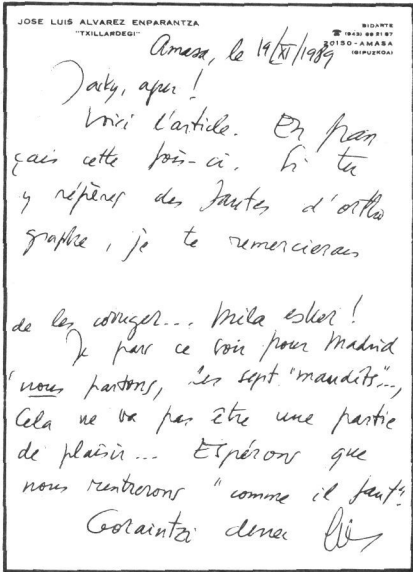 JOSE LUIS ALVAREZ ENPARANTZA
"TXILLARDEGI"
BIDARTE
20150-AMASA
(GIPUZKOA)
Amasa, le 19/XI/1989
Jacky, agur!
Voici l'article. En fran
çais cette fois-ci. Si tu
y répères des fautes d'ortho
graphe, je te remercierais
de les corriger... Mila esker!
Je pars ce soir pour Madrid
"nous partons, les sept "maudits"...,
Cela ne va pas être une partie
de plaisir... Espérons que
nous rentrerons "comme il faut".
Goraintzi denei